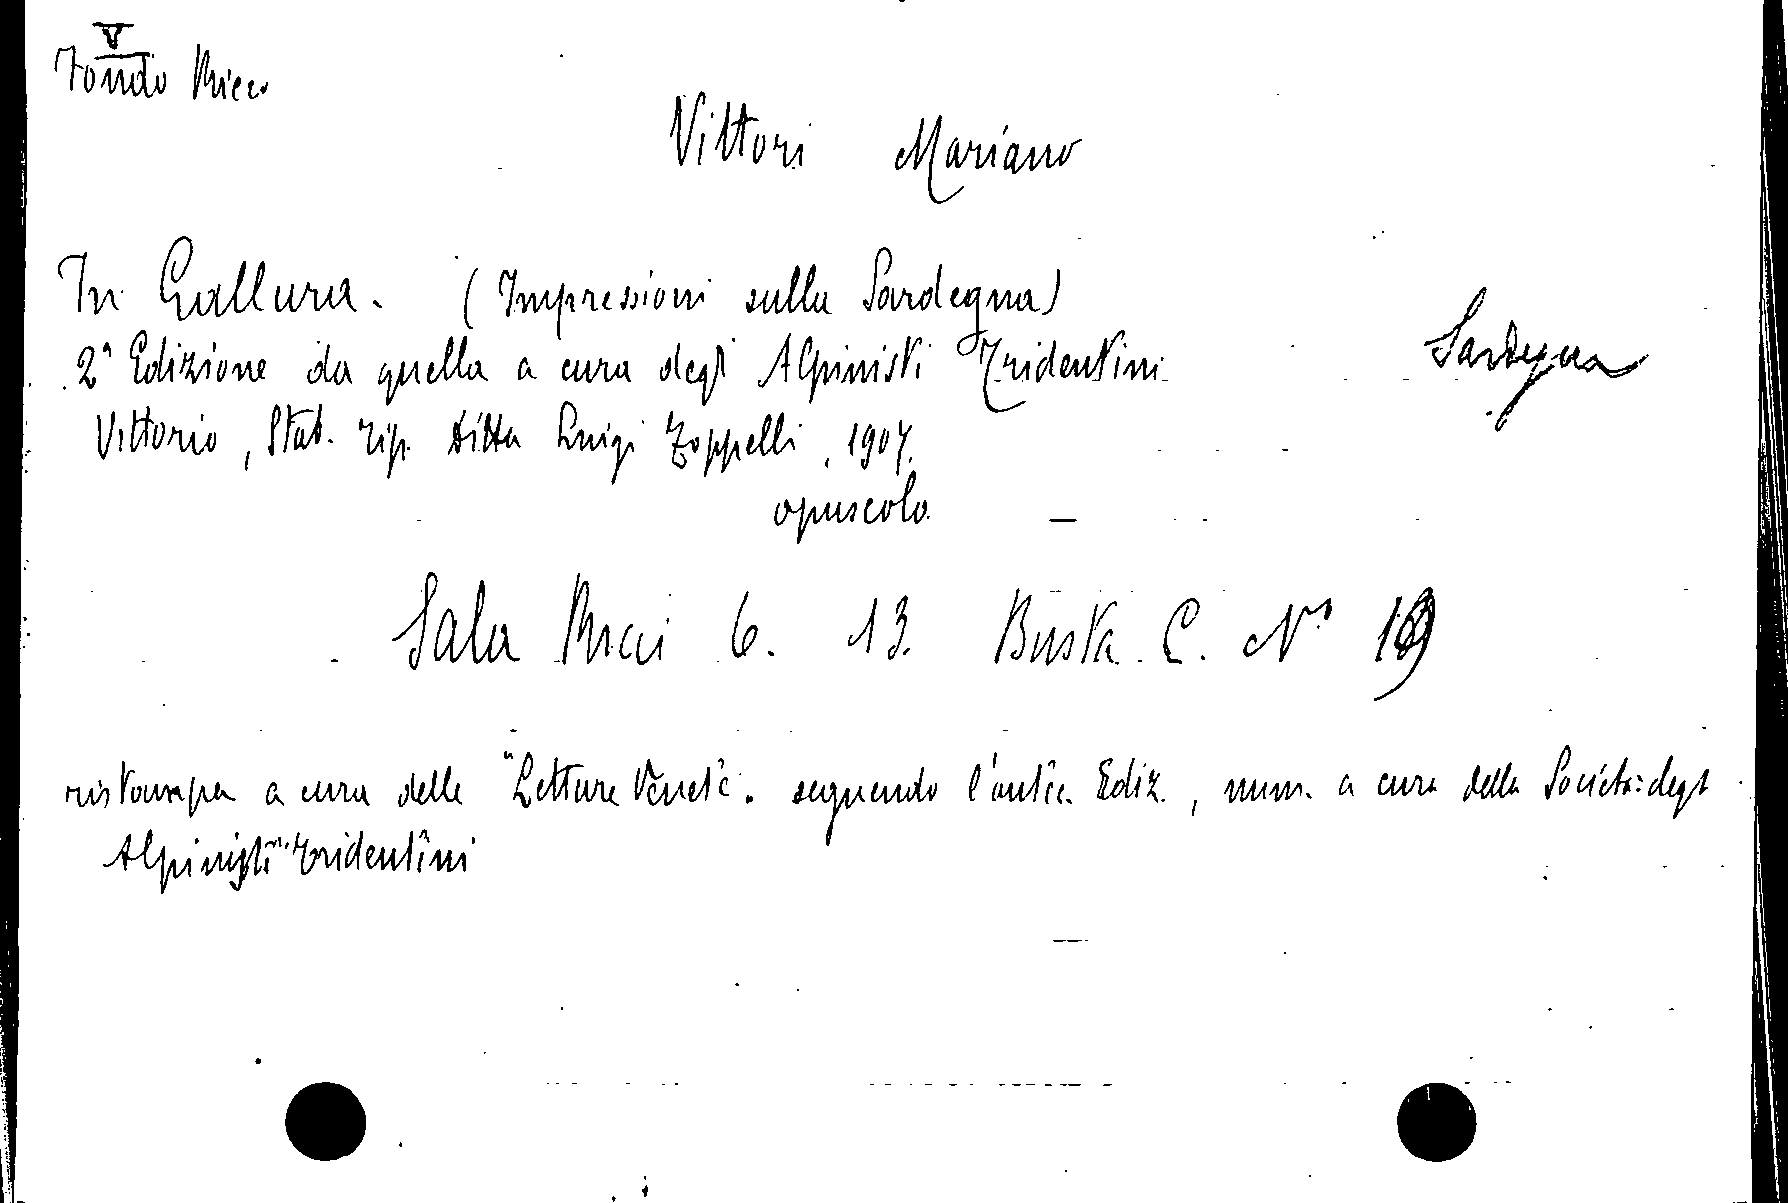 V
Fondo Ricci
Vittori Mariano
In Gallura. (Impressioni sulla Sardegna)
2ª Edizione da quella a cura degli Alpinisti Tridentini
Sardegna
Vittorio, Stab. Tip. Ditta Luigi Zoppelli, 1907.
opuscolo
Sala Ricci 6. 13. Busta C. Nº 19
ristampa a cura delle "Letture Venete". seguendo l'antic. Ediz., num. a cura della Società: degli
Alpinisti Tridentini